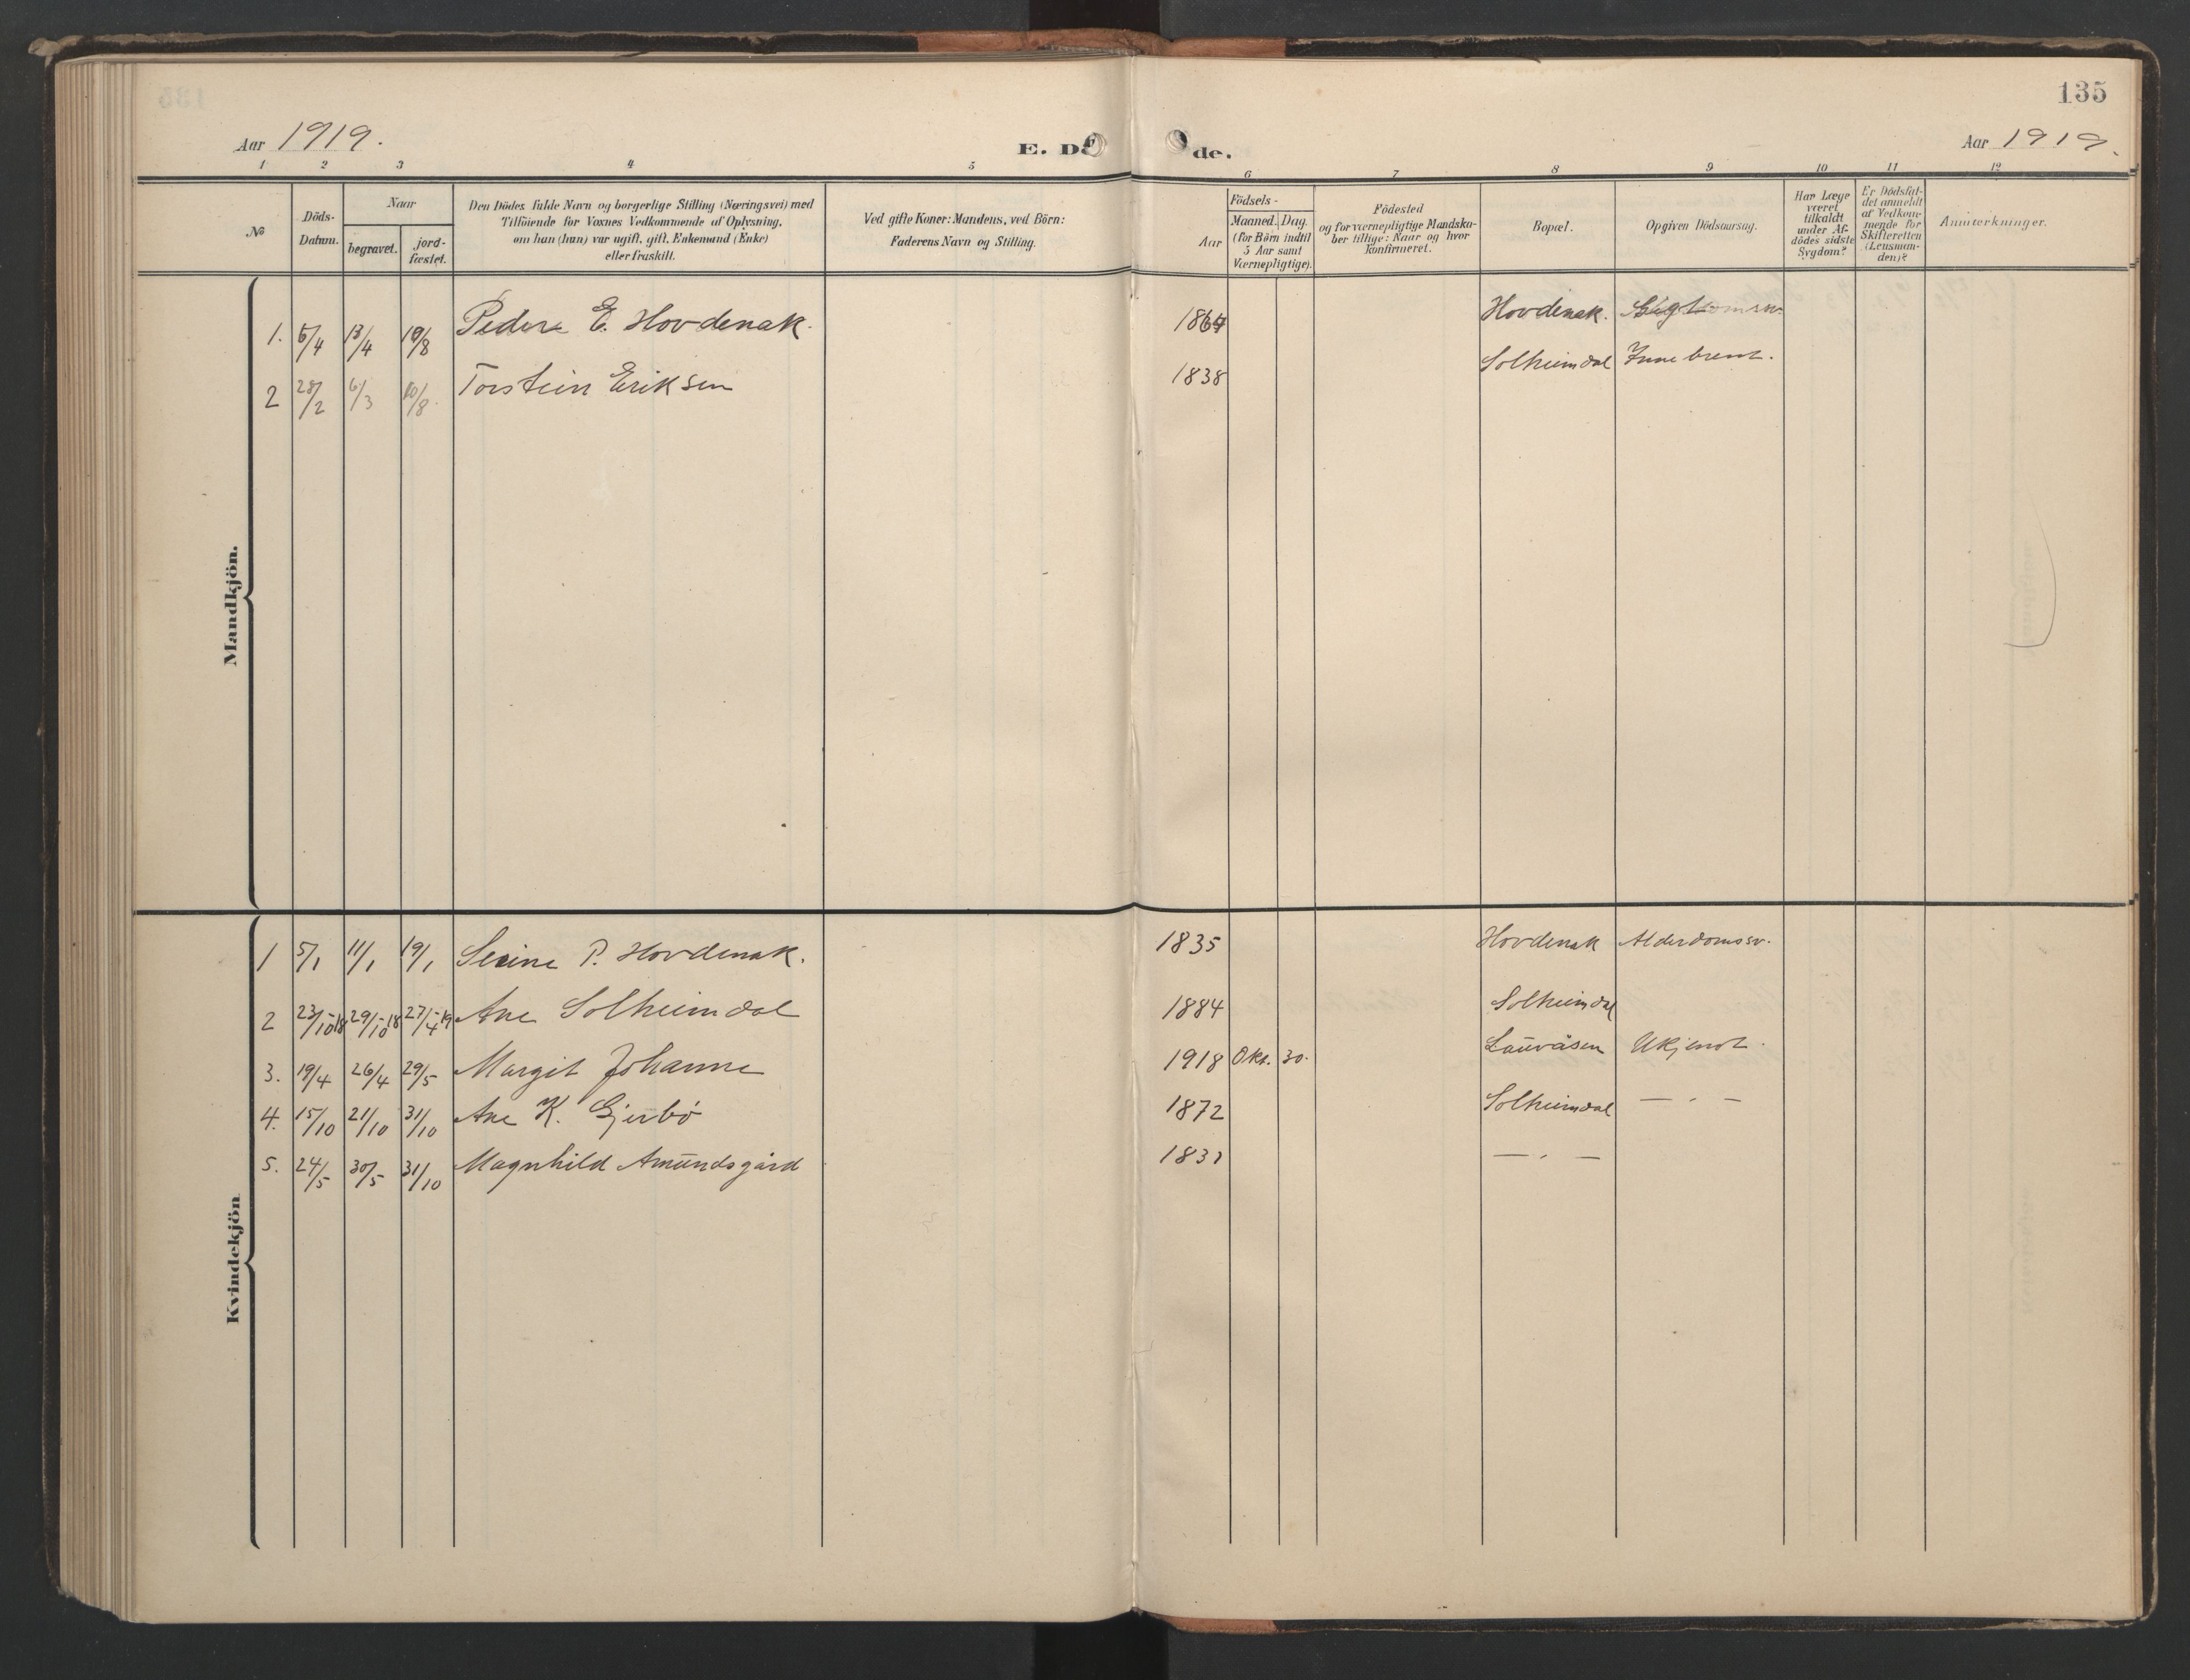 135
Aar 1919.
E. Dö
de.
Aar 1919.
1 2 3 4 5 6 7 8 9 10 11 12
№
Döds-Datum.
Naar
begravet.
jord-fæstet.
Den Dödes fulde Navn og borgerlige Stilling (Næringsvei) med
Tilföiende for Voxnes Vedkommende af Oplysning,
om han (hun) var ugift, gift, Enkemand (Enke)
eller fraskilt.
Ved gifte Koner: Mandens, ved Börn:
Faderens Navn og Stilling.
Födsels-
Aar
Maaned. Dag.
(for Börn indtil
5 Aar samt
Værnepligtige).
Födested
og for værnepligtige Mandska-
ber tillige: Naar og hvor
konfirmeret.
Bopæl.
Opgiven Dödsaarsag.
Har Læge
været
tilkaldt
under Af-
dödes sidste
Sygdom?
Er Dödsfal-
det anmeldt
af Vedkom-
mende for
Skifteretten
(Lensman-
den)?
Anmærkninger.
Mandkjön.
1. 5/4 13/4 10/8 Peder E. Hovdenak. 1864 Hovdenak.
2 28/2 6/3 10/8 Torstein Eriksen 1838 Solheimdal
Kvindekjön
1 5/1 11/1 19/1 Serine P. Hovdenak. 1835 Hovdenak Alderdomssv.
2 23/10-18 29/10-18 27/4-19 Ane Solheimdal 1884 Solheimdal
3. 19/4 26/4 29/5 Margit Johanne 1918 Okt. 30. Lauvåsen Ukjendt.
4. 15/10 21/10 31/10 Ane K. Gjerbö 1872 Solheimdal — " —
5. 24/5 30/5 31/10 Magnhild Amundsgård 1831 — " —